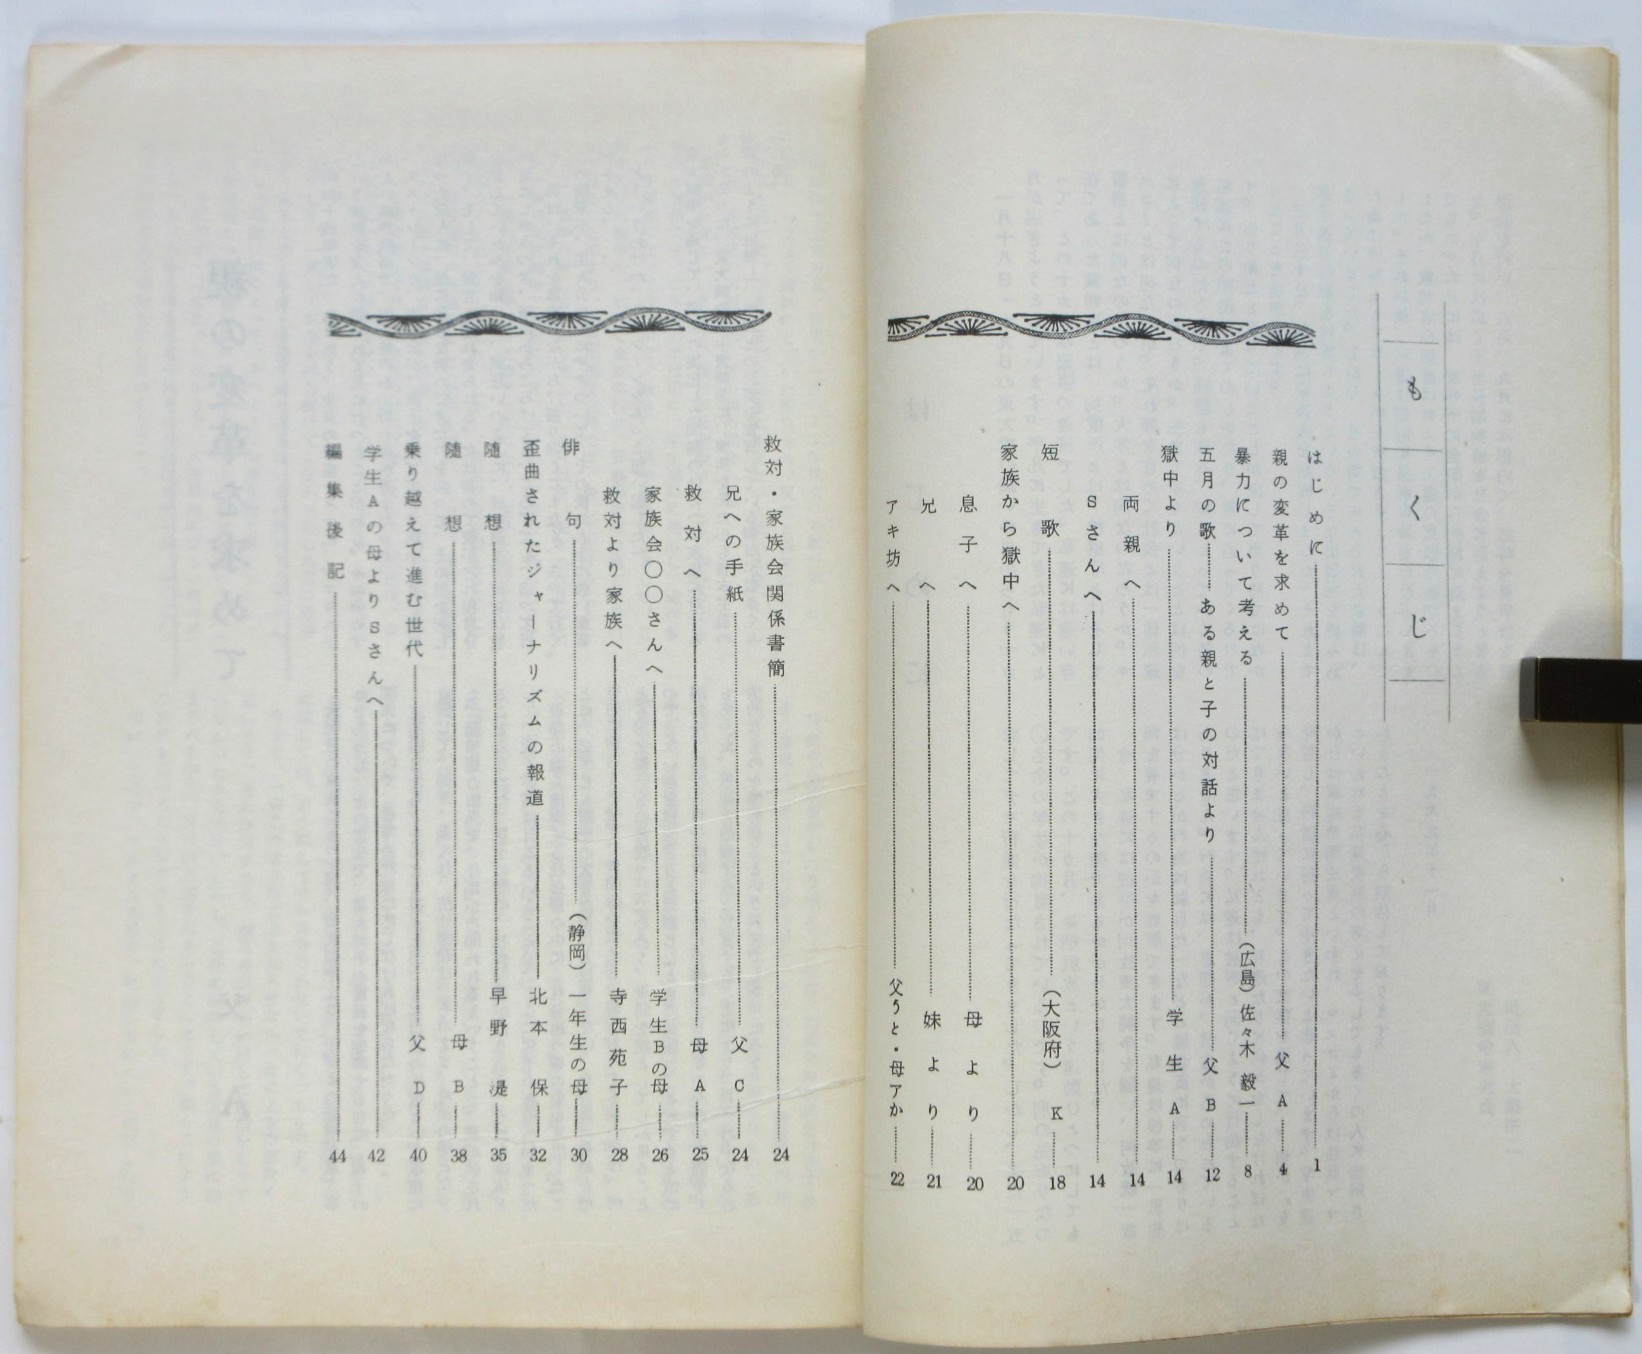 もくじ
はじめに 1
親の変革を求めて 父 A 4
暴力について考える (広島) 佐々木 毅一 8
五月の歌……ある親と子の対話より 父 B 12
獄中より 学生 A 14
両親へ 14
Sさんへ 14
短歌 (大阪府) K 18
家族から獄中へ 20
息子へ 母より 20
兄へ 妹より 21
アキ坊へ 父うと・母アか 22
救対・家族会関係書簡 24
兄への手紙 父 C 24
救対へ 母 A 25
家族会〇〇さんへ 学生Bの母 26
救対より家族へ 寺西苑子 28
俳句 (静岡) 一年生の母 30
歪曲されたジャーナリズムの報道 北本 保 32
随想 早野 湜 35
随想 母 B 38
乗り越えて進む世代 父 D 40
学生Aの母よりSさんへ 42
編集後記 44